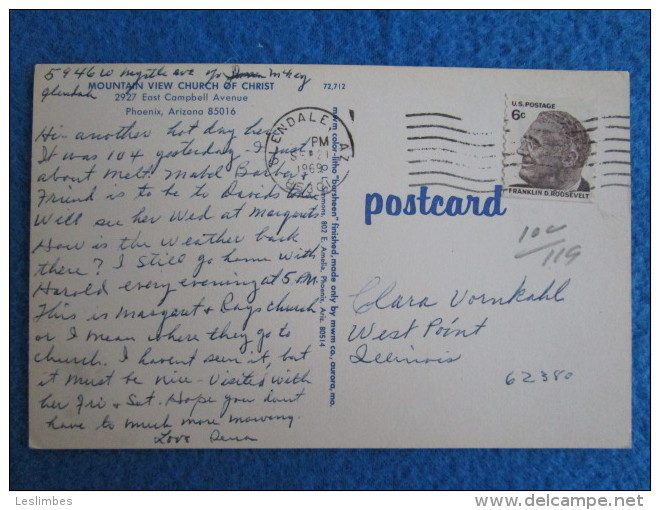 5946 W Myrtle ave
Glendale
MOUNTAIN VIEW CHURCH OF CHRIST
2927 East Campbell Avenue
Phoenix, Arizona 85016
72,712
Hi another hot day here
It was 104 yesterday. I just
about Melt. Mabel
Friend is to be to Davids
Will see her Wed at Margarets
How is the weather back
there? I still go home with
Harold every evening at 5 PM
This is Margaret + Rays church
or I mean where they go to
church. I havent seen it, but
it must be nice - Visited with
her Fri + Sat. Hope you dont
have to much more mowing.
Love
mwm color-litho "barsheen" finished, made only by mwm co., aurora, mo.
802 E. Amelia, Phoenix, Ariz. 80514
GLENDALE, AZ
PM
1969
U.S. POSTAGE
6c
FRANKLIN D. ROOSEVELT
postcard
Clara Vornkahl
West Point
Illinois
62380
Leslimbes
www.delcampe.net